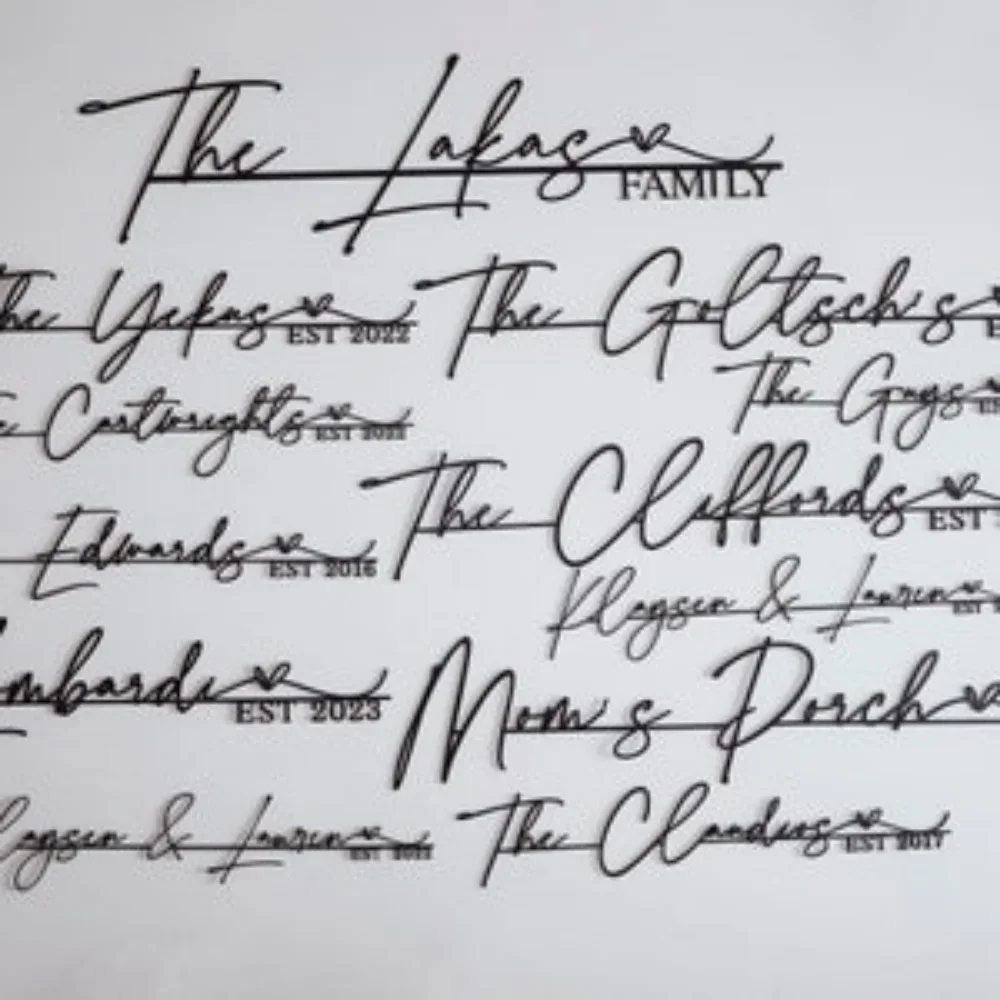 The Lakas
FAMILY
The Yekus
EST 2022
The Goltsch's
The Guys
Cartwrights
EST 2022
The Cliffords
EST
Edwards
EST 2016
Klaysen & Lauren
EST
mbardi
EST 2023
Mom's Porch
laysen & Lauren
EST
The Claudios
EST 2017